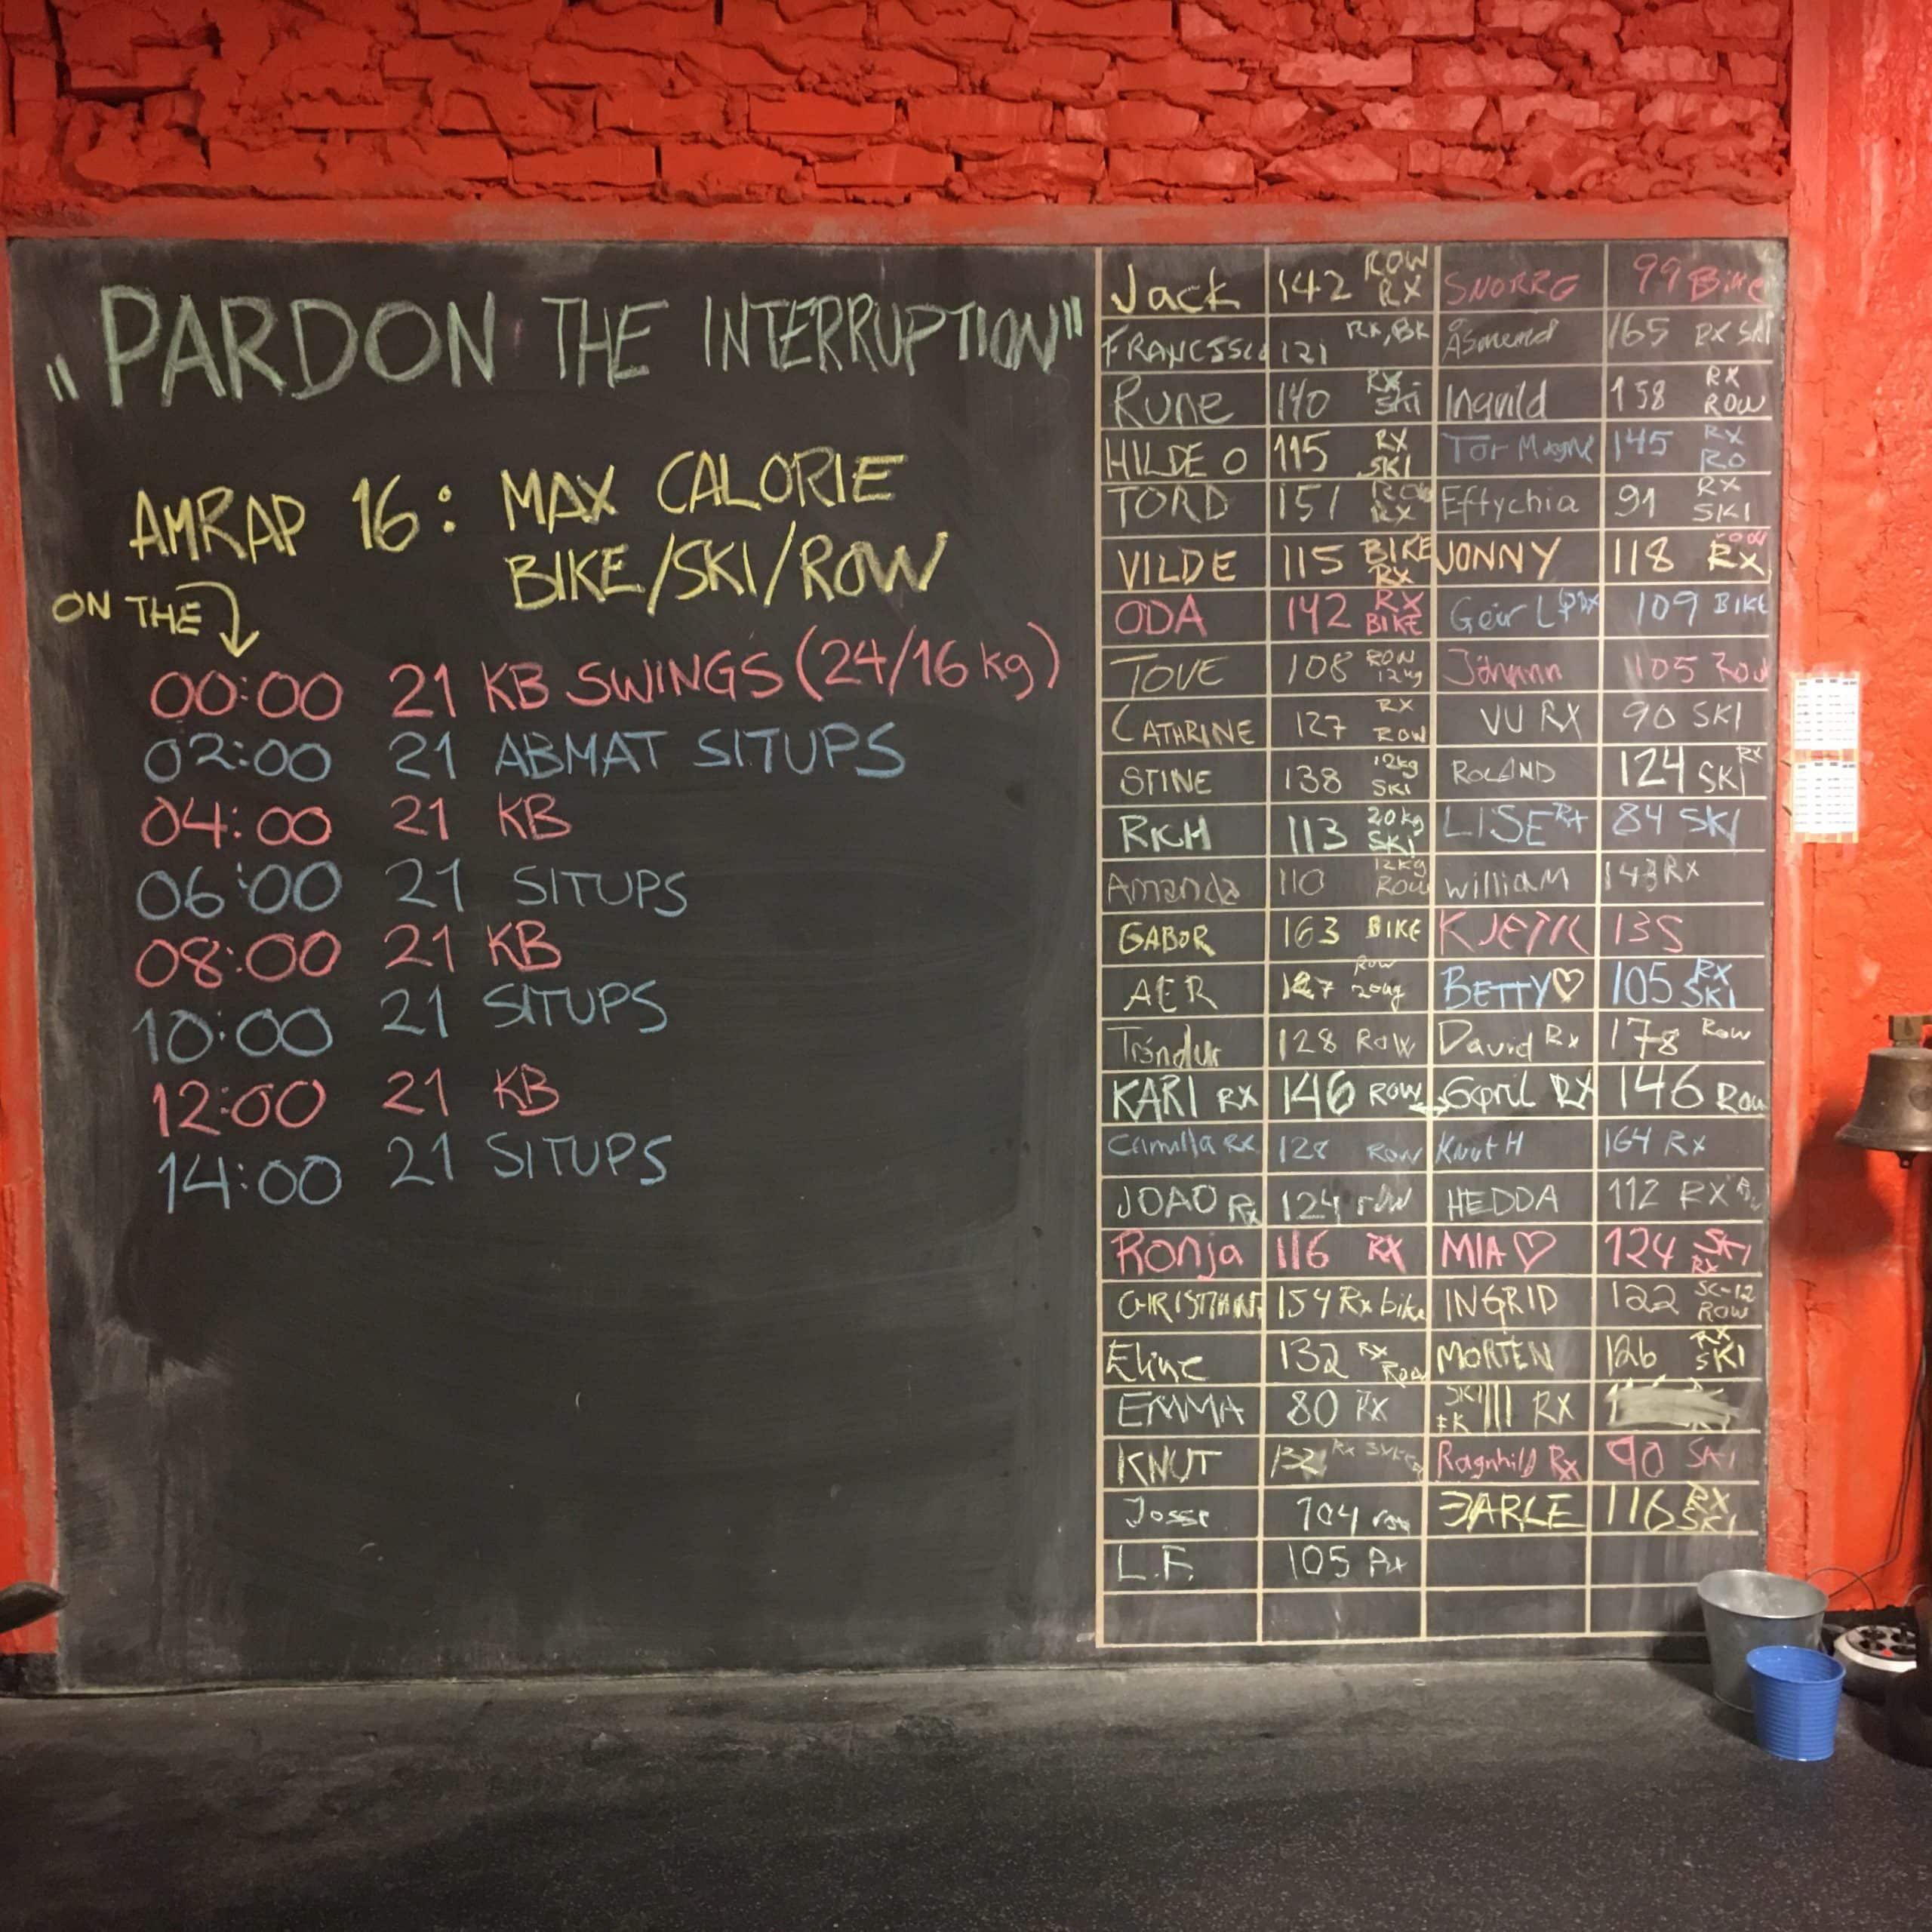 "PARDON THE INTERRUPTION"
AMRAP 16: MAX CALORIE
BIKE/SKI/ROW
ON THE
00:00 21 KB SWINGS (24/16 kg)
02:00 21 ABMAT SITUPS
04:00 21 KB
06:00 21 SITUPS
08:00 21 KB
10:00 21 SITUPS
12:00 21 KB
14:00 21 SITUPS
Jack 142 ROW RX SNORRE 99 Bike
121 RX, BK 165 RX SKI
Rune 140 RX SKI Ingvild 158 RX ROW
HILDE O 115 RX SKI Tor Magne 145 RX RO
TORD 151 ROW RX Eftychia 91 RX SKI
VILDE 115 BIKE RX JONNY 118 row RX
ODA 142 RX BIKE Geir L 109 BIKE
TOVE 108 ROW 12kg Jóhann 105 Row
CATHRINE 127 RX ROW VU RX 90 SKI
STINE 138 12kg SKI ROLAND 124 SKI RX
RICH 113 20kg SKI LISE RX 84 SKI
Amanda 110 12kg ROW WilliaM 143 RX
GABOR 163 BIKE KJETIL 135
AER ROW 20kg BETTY♡ 105 RX SKI
Tróndur 128 ROW David Rx 178 ROW
KARI RX 146 ROW RX 146 Row
Camilla RX 128 ROW Knut H 164 RX
JOAO Rx 124 row HEDDA 112 RX
Ronja 116 RX MIA♡ 124 SKI RX
154 Rx bike INGRID 122 SC-12 ROW
Eline 132 RX Row MORTEN 126 RX SKI
EMMA 80 RX SKI RX
KNUT 132 RX Ragnhild Rx 90 SKI
104 row JARLE 116 RX SKI
L.F. 105 Rx